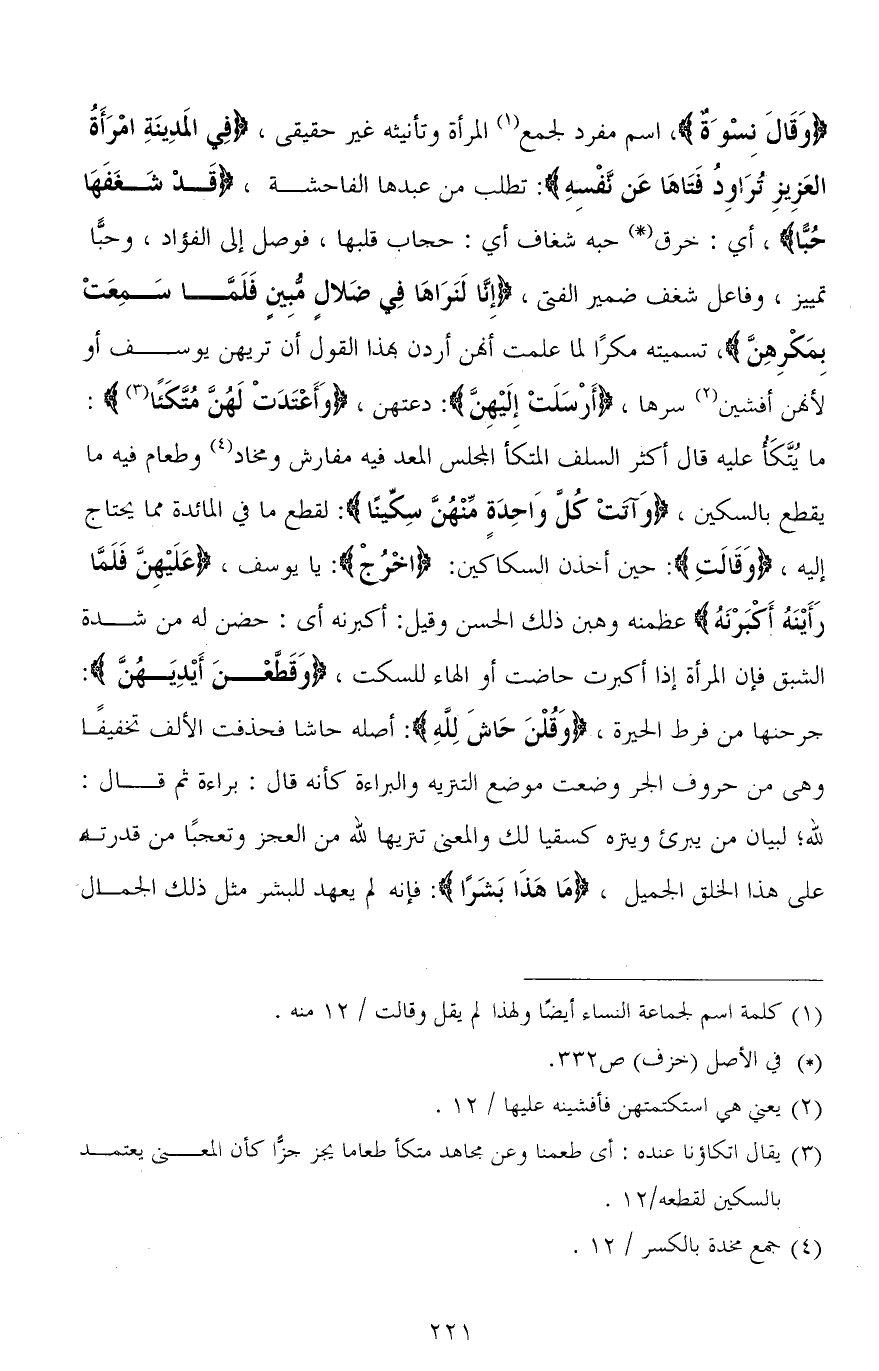 ﴿وَقَالَ نِسْوَةٌ﴾، اسم مفرد لجمع(١) المرأة وتأنيثه غير حقيقى ، ﴿فِي المَدِينَةِ امْرَأَةُ
العَزِيزِ تُرَاوِدُ فَتَاهَا عَن نَّفْسِهِ﴾: تطلب من عبدها الفاحشة ، ﴿قَدْ شَغَفَهَا
حُبًّا﴾ ، أي : خرق(*) حبه شغاف أي : حجاب قلبها ، فوصل إلى الفؤاد ، وحبًّا
تمييز ، وفاعل شغف ضمير الفتى ، ﴿إِنَّا لَنَرَاهَا فِي ضَلالٍ مُّبِينٍ فَلَمَّا سَمِعَتْ
بِمَكْرِهِنَّ﴾، تسميته مكرًا لما علمت أنهن أردن بهذا القول أن تريهن يوسف أو
لأنهن أفشين(٢) سرها ، ﴿أَرْسَلَتْ إِلَيْهِنَّ﴾: دعتهن ، ﴿وَأَعْتَدَتْ لَهُنَّ مُتَّكَئًا(٣)﴾ :
ما يُتَّكَأُ عليه قال أكثر السلف المتكأ المجلس المعد فيه مفارش ومخاد(٤) وطعام فيه ما
يقطع بالسكين ، ﴿وَآتَتْ كُلَّ وَاحِدَةٍ مِّنْهُنَّ سِكِّينًا﴾: لقطع ما في المائدة مما يحتاج
إليه ، ﴿وَقَالَتِ﴾: حين أخذن السكاكين: ﴿اخْرُجْ﴾: يا يوسف ، ﴿عَلَيْهِنَّ فَلَمَّا
رَأَيْنَهُ أَكْبَرْنَهُ﴾ عظمنه وهبن ذلك الحسن وقيل: أكبرنه أى : حضن له من شدة
الشبق فإن المرأة إذا أكبرت حاضت أو الهاء للسكت ، ﴿وَقَطَّعْنَ أَيْدِيَهُنَّ﴾:
جرحنها من فرط الحيرة ، ﴿وَقُلْنَ حَاشَ لِلَّهِ﴾: أصله حاشا فحذفت الألف تخفيفًا
وهى من حروف الجر وضعت موضع التنزيه والبراءة كأنه قال : براءة ثم قال :
لله؛ لبيان من يبرئ وينزه كسقيا لك والمعنى تنزيها لله من العجز وتعجبًا من قدرته
على هذا الخلق الجميل ، ﴿مَا هَذَا بَشَرًا﴾: فإنه لم يعهد للبشر مثل ذلك الجمال
(١) كلمة اسم لجماعة النساء أيضًا ولهذا لم يقل وقالت / ١٢ منه .
(*) في الأصل (خزف) ص٣٣٢.
(٢) يعني هي استكتمتهن فأفشينه عليها / ١٢ .
(٣) يقال اتكاؤنا عنده : أى طعمنا وعن مجاهد متكأ طعاما يجز جزًّا كأن المعنى يعتمد
بالسكين لقطعه/١٢ .
(٤) جمع مخدة بالكسر / ١٢ .
٢٢١